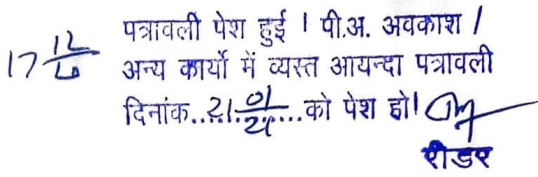 पत्रावली पेश हुई । पी.अ. अवकाश /
17 12 अन्य कार्यो में व्यस्त आयन्दा पत्रावली
दिनांक..21.01.....को पेश हो।
रीडर